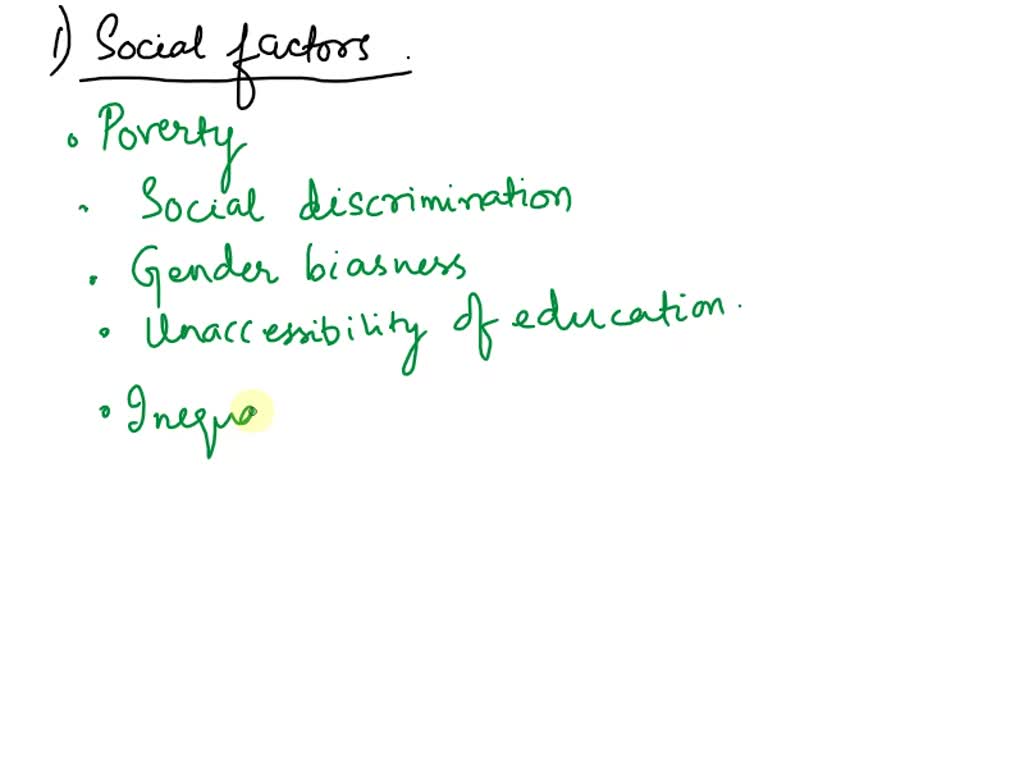 1) Social factors.
• Poverty
• Social discrimination
• Gender biasness
• Unaccessibility of education.
• Inequa